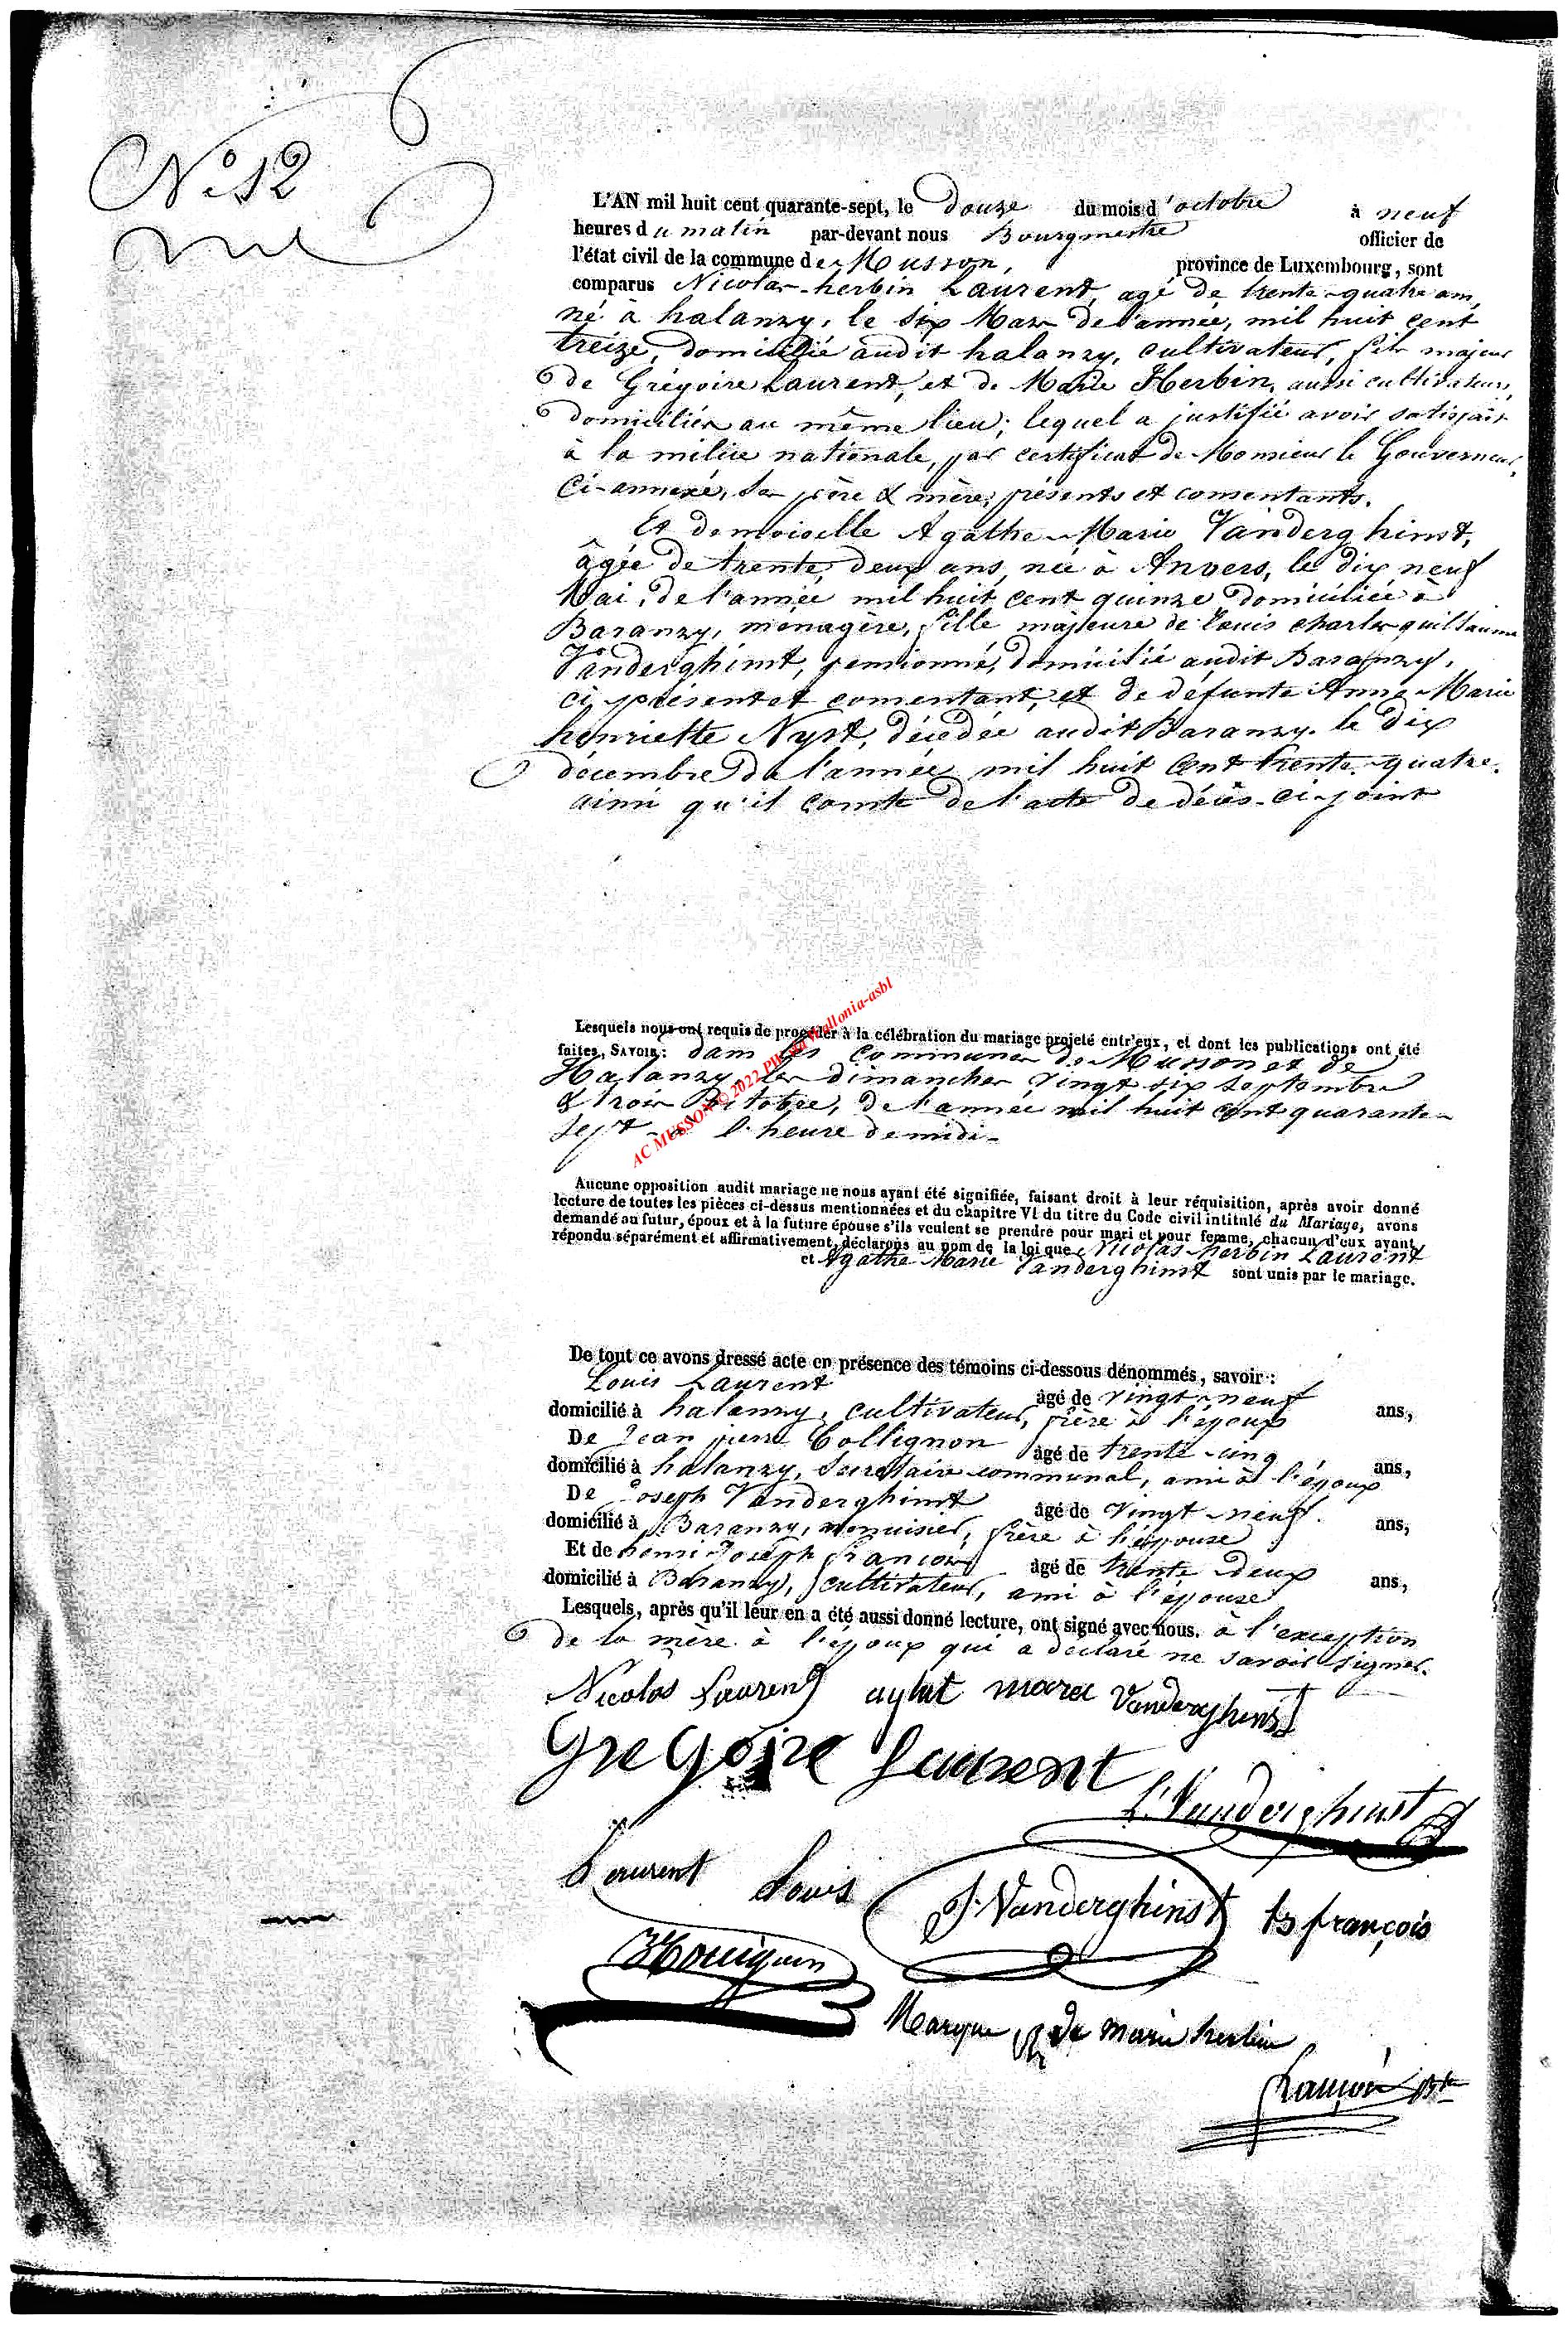 N.° 12
L'AN mil huit cent quarante-sept, le Douze du mois d'octobre à neuf
heures du matin par-devant nous Bourgmestre officier de
l'état civil de la commune de Musson, province de Luxembourg, sont
comparus Nicolas-herbin Laurent, agé de trente-quatre ans,
né à halanzy, le six Mars de l'année, mil huit cent
treize, domicilié audit halanzy, cultivateur, fils majeur
de Grégoire Laurent, et de Marie Herbin, aussi cultivateurs,
domiciliés au même lieu; lequel a justifié avoir satisfait
à la milice nationale, par certificat de Monsieur le Gouverneur,
Ci-annexé, ses père & mère, présents et consentants.
Et demoiselle Agathe-Marie Vanderghinst,
âgée de trente, deux ans, née à Anvers, le dix neuf
Mai, de l'année mil huit cent quinze, domiciliée à
Baranzy, ménagère, fille majeure de Louis charles guillaume
Vanderghinst, pensionné, domicilié audit Baranzy,
ci présent et consentant, et de défunte Anne-Marie
henriette Nyst, décédée audit Baranzy, le dix
décembre de l'année mil huit Cent trente-quatre.
ainsi qu'il conste de l'acte de décès-ci-joint
Lesquels nous ont requis de procéder à la célébration du mariage projeté entr'eux, et dont les publications ont été
faites, SAVOIR: dans les Communes de Musson et de
Halanzy, les dimanches vingt six septembre
& trois octobre, de l'année mil huit cent quarante-
sept à l'heure de midi-
AC MUSSON © 2022 Wallonia-asbl
Aucune opposition audit mariage ne nous ayant été signifiée, faisant droit à leur réquisition, après avoir donné
lecture de toutes les pièces ci-dessus mentionnées et du chapitre VI du titre du Code civil intitulé du Mariage, avons
demandé au futur, époux et à la future épouse s'ils veulent se prendre pour mari et pour femme, chacun d'eux ayant
répondu séparément et affirmativement, déclarons au nom de la loi que Nicolas-herbin Laurent
et Agathe Marie Vanderghinst sont unis par le mariage.
De tout ce avons dressé acte en présence des témoins ci-dessous dénommés, savoir:
Louis Laurent âgé de vingt-neuf ans,
domicilié à halanzy, cultivateur, frère à l'époux
De Jean pierre Collignon âgé de trente-cinq ans,
domicilié à halanzy, Secrétaire communal, ami à l'époux
De Joseph Vanderghinst âgé de vingt-neuf ans,
domicilié à Baranzy, menuisier, frère à l'épouse
Et de henri-Joseph françois âgé de trente-deux ans,
domicilié à Baranzy, cultivateur, ami à l'épouse
Lesquels, après qu'il leur en a été aussi donné lecture, ont signé avec nous. à l'exception
de la mère à l'époux qui a déclaré ne savoir signer.
Nicolas Laurent aghat marei Vanderghinst
Gregoire Laurent
L. Vanderghinst
Laurent Louis J. Vanderghinst françois
Marque de marie herbin